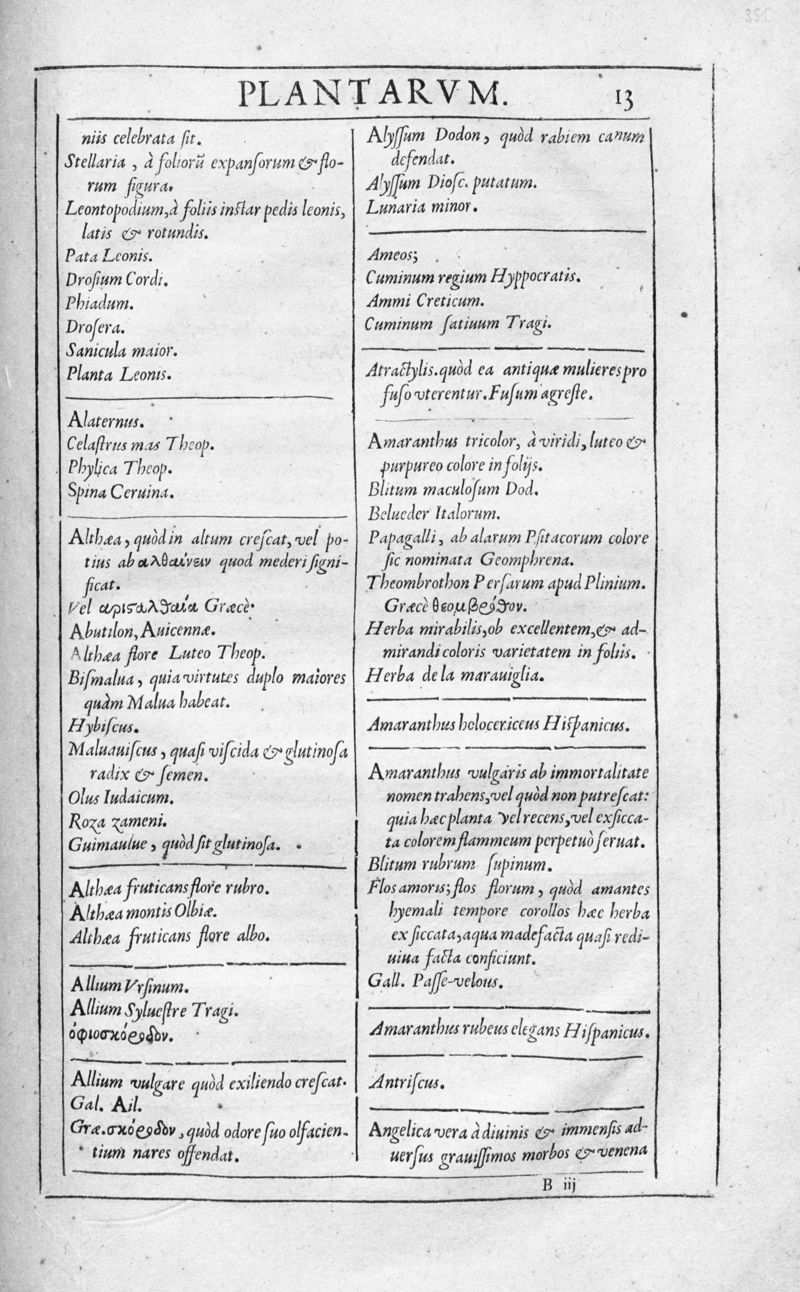 PLANTARVM. 13
niis celebrata ſit.
Stellaria, à foliorũ expanſorum & flo-
rum figura.
Leontopodium, à foliis inſtar pedis leonis,
latis & rotundis.
Pata Leonis.
Droſium Cordi.
Phiadum.
Droſera.
Sanicula maior.
Planta Leonis.
Alaternus.
Celaſtrus mas Theop.
Phylica Theop.
Spina Ceruina.
Althæa, quòd in altum creſcat, vel po-
tius ab αλθαίνειν quod mederi ſigni-
ficat.
Vel αριςαλθαία Græcè.
Abutilon, Auicennæ.
Althæa flore Luteo Theop.
Biſmalua, quia virtutes duplo maiores
quàm Malua habeat.
Hybiſcus.
Maluauiſcus, quaſi viſcida & glutinoſa
radix & ſemen.
Olus Iudaicum.
Roza zameni.
Guimaulue, quòd ſit glutinoſa.
Althæa fruticans flore rubro.
Althæa montis Olbiæ.
Althæa fruticans flore albo.
Allium Vrſinum.
Allium Sylueſtre Tragi.
ὀφιοσκόροδον.
Allium vulgare quòd exiliendo creſcat.
Gal. Ail.
Græ. σκόροδον, quòd odore ſuo olfacien-
tium nares offendat.
Alyſſum Dodon, quòd rabiem canum
defendat.
Alyſſum Dioſc. putatum.
Lunaria minor.
Ameos;
Cuminum regium Hyppocratis.
Ammi Creticum.
Cuminum ſatiuum Tragi.
Atractylis. quòd ea antiquæ mulieres pro
fuſo vterentur. Fuſum agreſte.
Amaranthus tricolor, à viridi, luteo &
purpureo colore in folijs.
Blitum maculoſum Dod.
Belueder Italorum.
Papagalli, ab alarum Pſitacorum colore
ſic nominata Geomphrena.
Theombrothon Perſarum apud Plinium.
Græcè θεομβρόθον.
Herba mirabilis, ob excellentem, & ad-
mirandi coloris varietatem in foliis.
Herba de la marauiglia.
Amaranthus holocericeus Hiſpanicus.
Amaranthus vulgaris ab immortalitate
nomen trahens, vel quòd non putreſcat:
quia hæc planta vel recens, vel exſicca-
ta colorem flammeum perpetuò ſeruat.
Blitum rubrum ſupinum.
Flos amoris; flos florum, quòd amantes
hyemali tempore corollos hæc herba
exſiccata, aqua madefacta quaſi redi-
uiua facta conficiunt.
Gall. Paſſe-velous.
Amaranthus rubeus elegans Hiſpanicus.
Antriſcus.
Angelica vera à diuinis & immenſis ad-
uerſus grauiſſimos morbos & venena
B iij